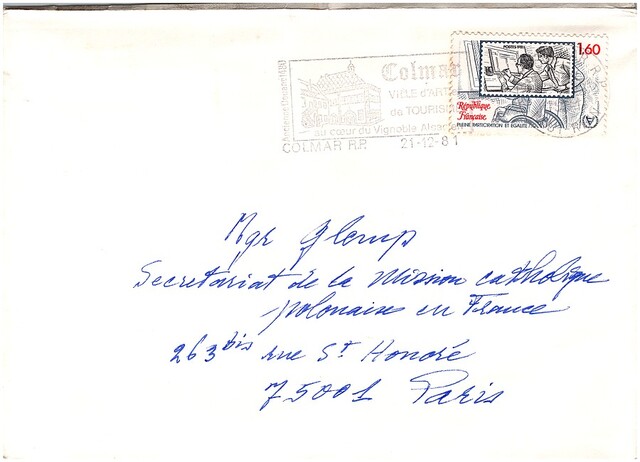 POSTES 1981
1,60
Ancienne Douane 1480
Colmar
VILLE d'ART
de TOURISME
au cœur du Vignoble
République
Française
PLEINE PARTICIPATION ET EGALITE
COLMAR R.P. 21-12-81
Mgr Glemp
Secretariat de la Mission catholique
polonaise en France
263 bis rue St Honoré
75001 Paris